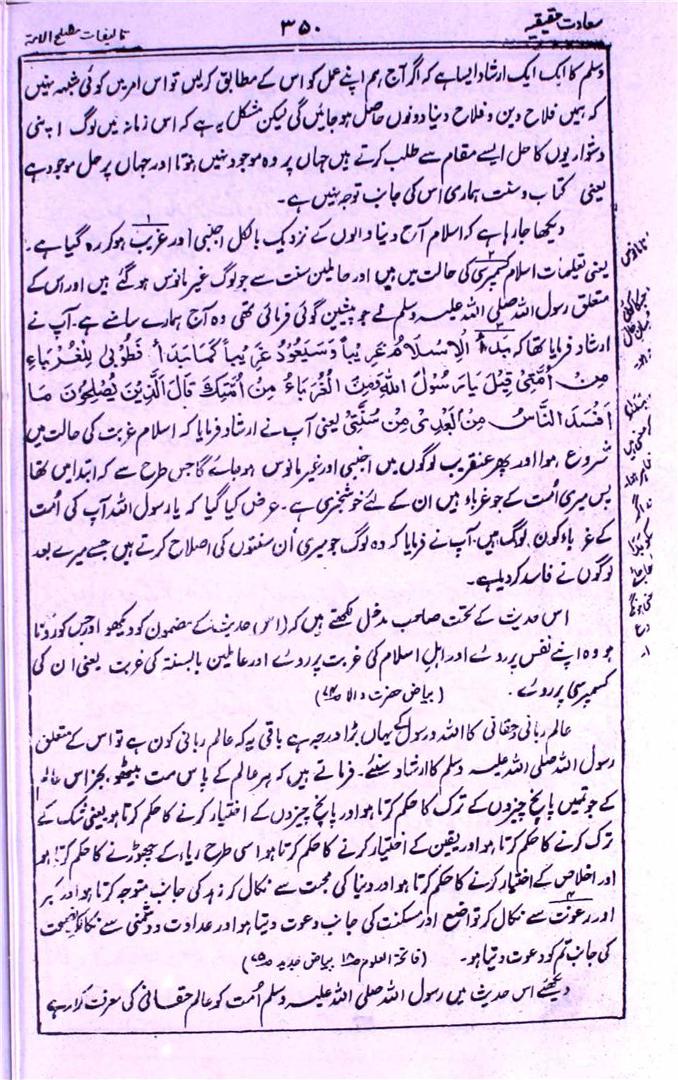 سعادت حقیقیہ
۳۵۰
تالیفات مصلح الامۃ
وسلم کا ایک ایک ارشاد ایسا ہے کہ اگر آج ہم اپنے عمل کو اس کے مطابق کر لیں تو اس امر میں کوئی شبہ نہیں
کہ ہمیں فلاح دین و فلاح دنیا دونوں حاصل ہو جائیں گی لیکن مشکل یہ ہے کہ اس زمانہ میں لوگ اپنی
دشواریوں کا حل ایسے مقام سے طلب کرتے ہیں جہاں پر وہ موجود نہیں ہوتا اور جہاں پر حل موجود ہے
یعنی کتاب و سنت ہماری اس کی جانب توجہ نہیں ہے۔
دیکھا جا رہا ہے کہ اسلام آج دنیا والوں کے نزدیک بالکل اجنبی اور غریب ہو کر رہ گیا ہے۔
یعنی تعلیمات اسلام کسمپرسی کی حالت میں ہیں اور حاملین سنت سے جو لوگ غیر مانوس ہو گئے ہیں اور اس کے
متعلق رسول اللہ صلی اللہ علیہ وسلم نے جو پیشین گوئی فرمائی تھی وہ آج ہمارے سامنے ہے۔ آپ نے
ارشاد فرمایا تھا کہ بَدَأَ الْاِسْلَامُ غَرِیْباً وَسَیَعُوْدُ غَرِیْباً کَمَا بَدَأَ فَطُوْبٰی لِلْغُرَبَاءِ
مِنْ اُمَّتِیْ قِیْلَ یَارَسُوْلَ اللہِ وَمَنِ الْغُرَبَاءُ مِنْ اُمَّتِکَ قَالَ الَّذِیْنَ یُصْلِحُوْنَ مَا
اَفْسَدَ النَّاسُ مِنْ بَعْدِیْ مِنْ سُنَّتِیْ یعنی آپ نے ارشاد فرمایا کہ اسلام غربت کی حالت میں
شروع ہوا اور پھر عنقریب لوگوں میں اجنبی اور غیر مانوس ہو جائے گا جس طرح سے کہ ابتدا میں تھا
پس میری امت کے جو غرباء ہیں ان کے لئے خوشخبری ہے۔ عرض کیا گیا کہ یا رسول اللہ آپ کی امت
کے غرباء کون لوگ ہیں، آپ نے فرمایا کہ وہ لوگ جو میری اُن سنتوں کی اصلاح کرتے ہیں جسے میرے بعد
لوگوں نے فاسد کر دیا ہے۔
اس حدیث کے تحت صاحب مدخل لکھتے ہیں کہ (اس) حدیث کے مضمون کو دیکھو اور جس کو رونا
ہو وہ اپنے نفس پر روئے اور اہل اسلام کی غربت پر روئے اور عاملین بالسنتہ کی غربت یعنی ان کی
کسمپرسی پر روئے۔ (بیاض حضرت والا ص۷۴)
عالم ربانی حقانی کا اللہ و رسول کے یہاں بڑا درجہ ہے باقی یہ کہ عالم ربانی کون ہے تو اس کے متعلق
رسول اللہ صلی اللہ علیہ وسلم کا ارشاد سنئے۔ فرماتے ہیں کہ ہر عالم کے پاس مت بیٹھو، بجز اس عالم
کے جو تمہیں پانچ چیزوں کے ترک کا حکم کرتا ہو اور پانچ چیزوں کے اختیار کرنے کا حکم کرتا ہو یعنی شک کے
ترک کرنے کا حکم کرتا ہو اور یقین کے اختیار کرنے کا حکم کرتا ہو اسی طرح ریاء کے چھوڑنے کا حکم کرتا ہو
اور اخلاص کے اختیار کرنے کا حکم کرتا ہو اور دنیا کی محبت سے نکال کر زہد کی جانب متوجہ کرتا ہو اور کبر
اور رعونت سے نکال کر تواضع اور مسکنت کی جانب دعوت دیتا ہو اور عداوت و دشمنی سے نکال کر نصیحت
کی جانب تم کو دعوت دیتا ہو۔ (فاتحۃ العلوم ص۱۸ بیاض جدید ص۷۵)
دیکھئے اس حدیث میں رسول اللہ صلی اللہ علیہ وسلم اُمت کو عالم حقانی کی معرفت کرا رہے